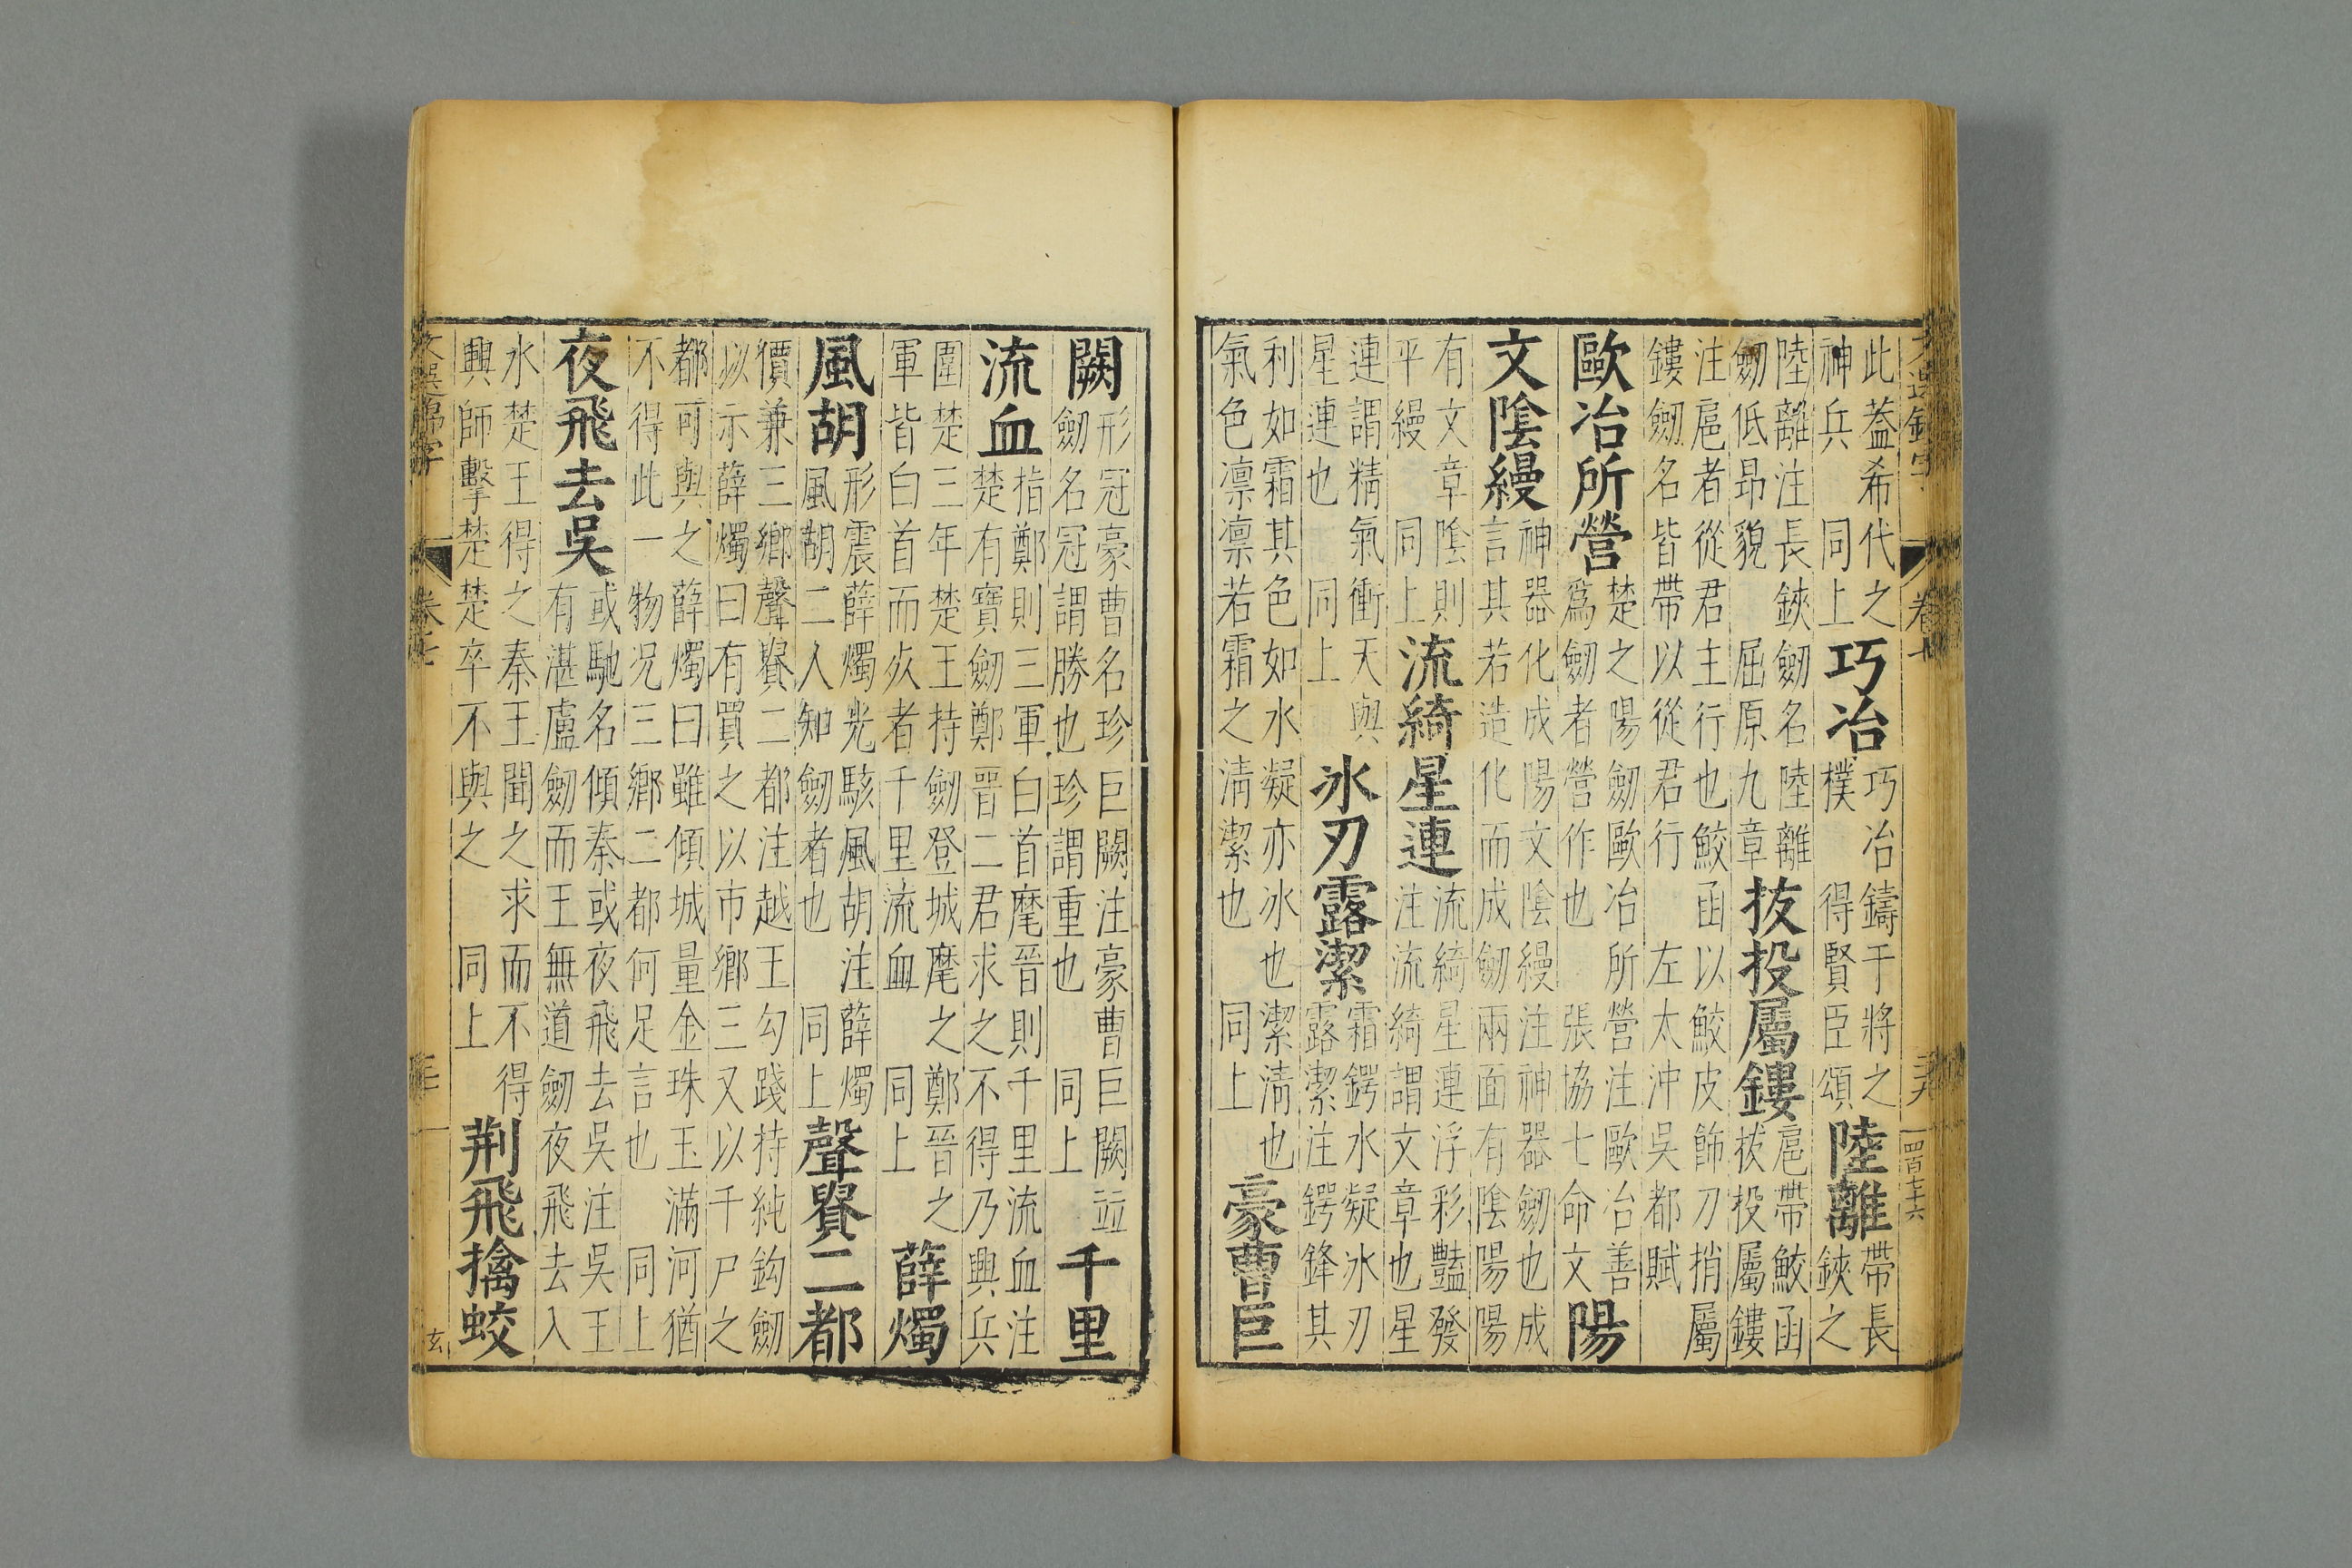 文選錦字 卷七 四百七十六
此蓋希代之神兵 同上 巧冶 巧冶鑄于將之樸 得賢臣頌 陸離 帶長鋏之
陸離注長鋏劒名陸離劒低昂貌 屈原九章 抜投屬鏤 扈帶鮫函拔投屬鏤
注扈者從君主行也鮫函以鮫皮飾刀捎屬鏤劒名皆帶以從君行 左太沖吳都賦
歐冶所營 楚之陽劒歐冶所營注歐冶善為劒者營作也 張協七命文 陽
文陰縵 神器化成陽文陰縵注神器劒也成言其若造化而成劒兩面有陰陽陽
有文章陰則平縵 同上 流綺星連 流綺星連浮彩豔發注流綺謂文章也星
連謂精氣衝天與星連也 同上 氷刃露潔 霜鍔水凝氷刃露潔注鍔鋒其
利如霜其色如水凝亦氷也潔清也氣色凛凛若霜之清潔也 同上 豪曹巨
闕 形冠豪曹名珍巨闕注豪曹巨闕並劒名冠謂勝也珍謂重也 同上 千里
流血 指鄭則三軍白首麾晉則千里流血注楚有寶劒鄭晉二君求之不得乃興兵
圍楚三年楚王持劒登城麾之鄭晉之軍皆白首而灰者千里流血 同上 薛燭
風胡 形震薛燭光駭風胡注薛燭風胡二人知劒者也 同上 聲貴二都
價兼三鄉聲貴二都注越王勾踐持純鈎劒以示薛燭曰有買之以市鄉三又以千戶之
都可與之薛燭曰雖傾城量金珠玉滿河猶不得此一物况三鄉二都何足言也 同上
夜飛去吳 或馳名傾秦或夜飛去吳注吳王有湛盧劒而王無道劒夜飛去入
水楚王得之秦王聞之求而不得興師擊楚楚卒不與之 同上 荆飛擒蛟
文選錦字 卷七 玄